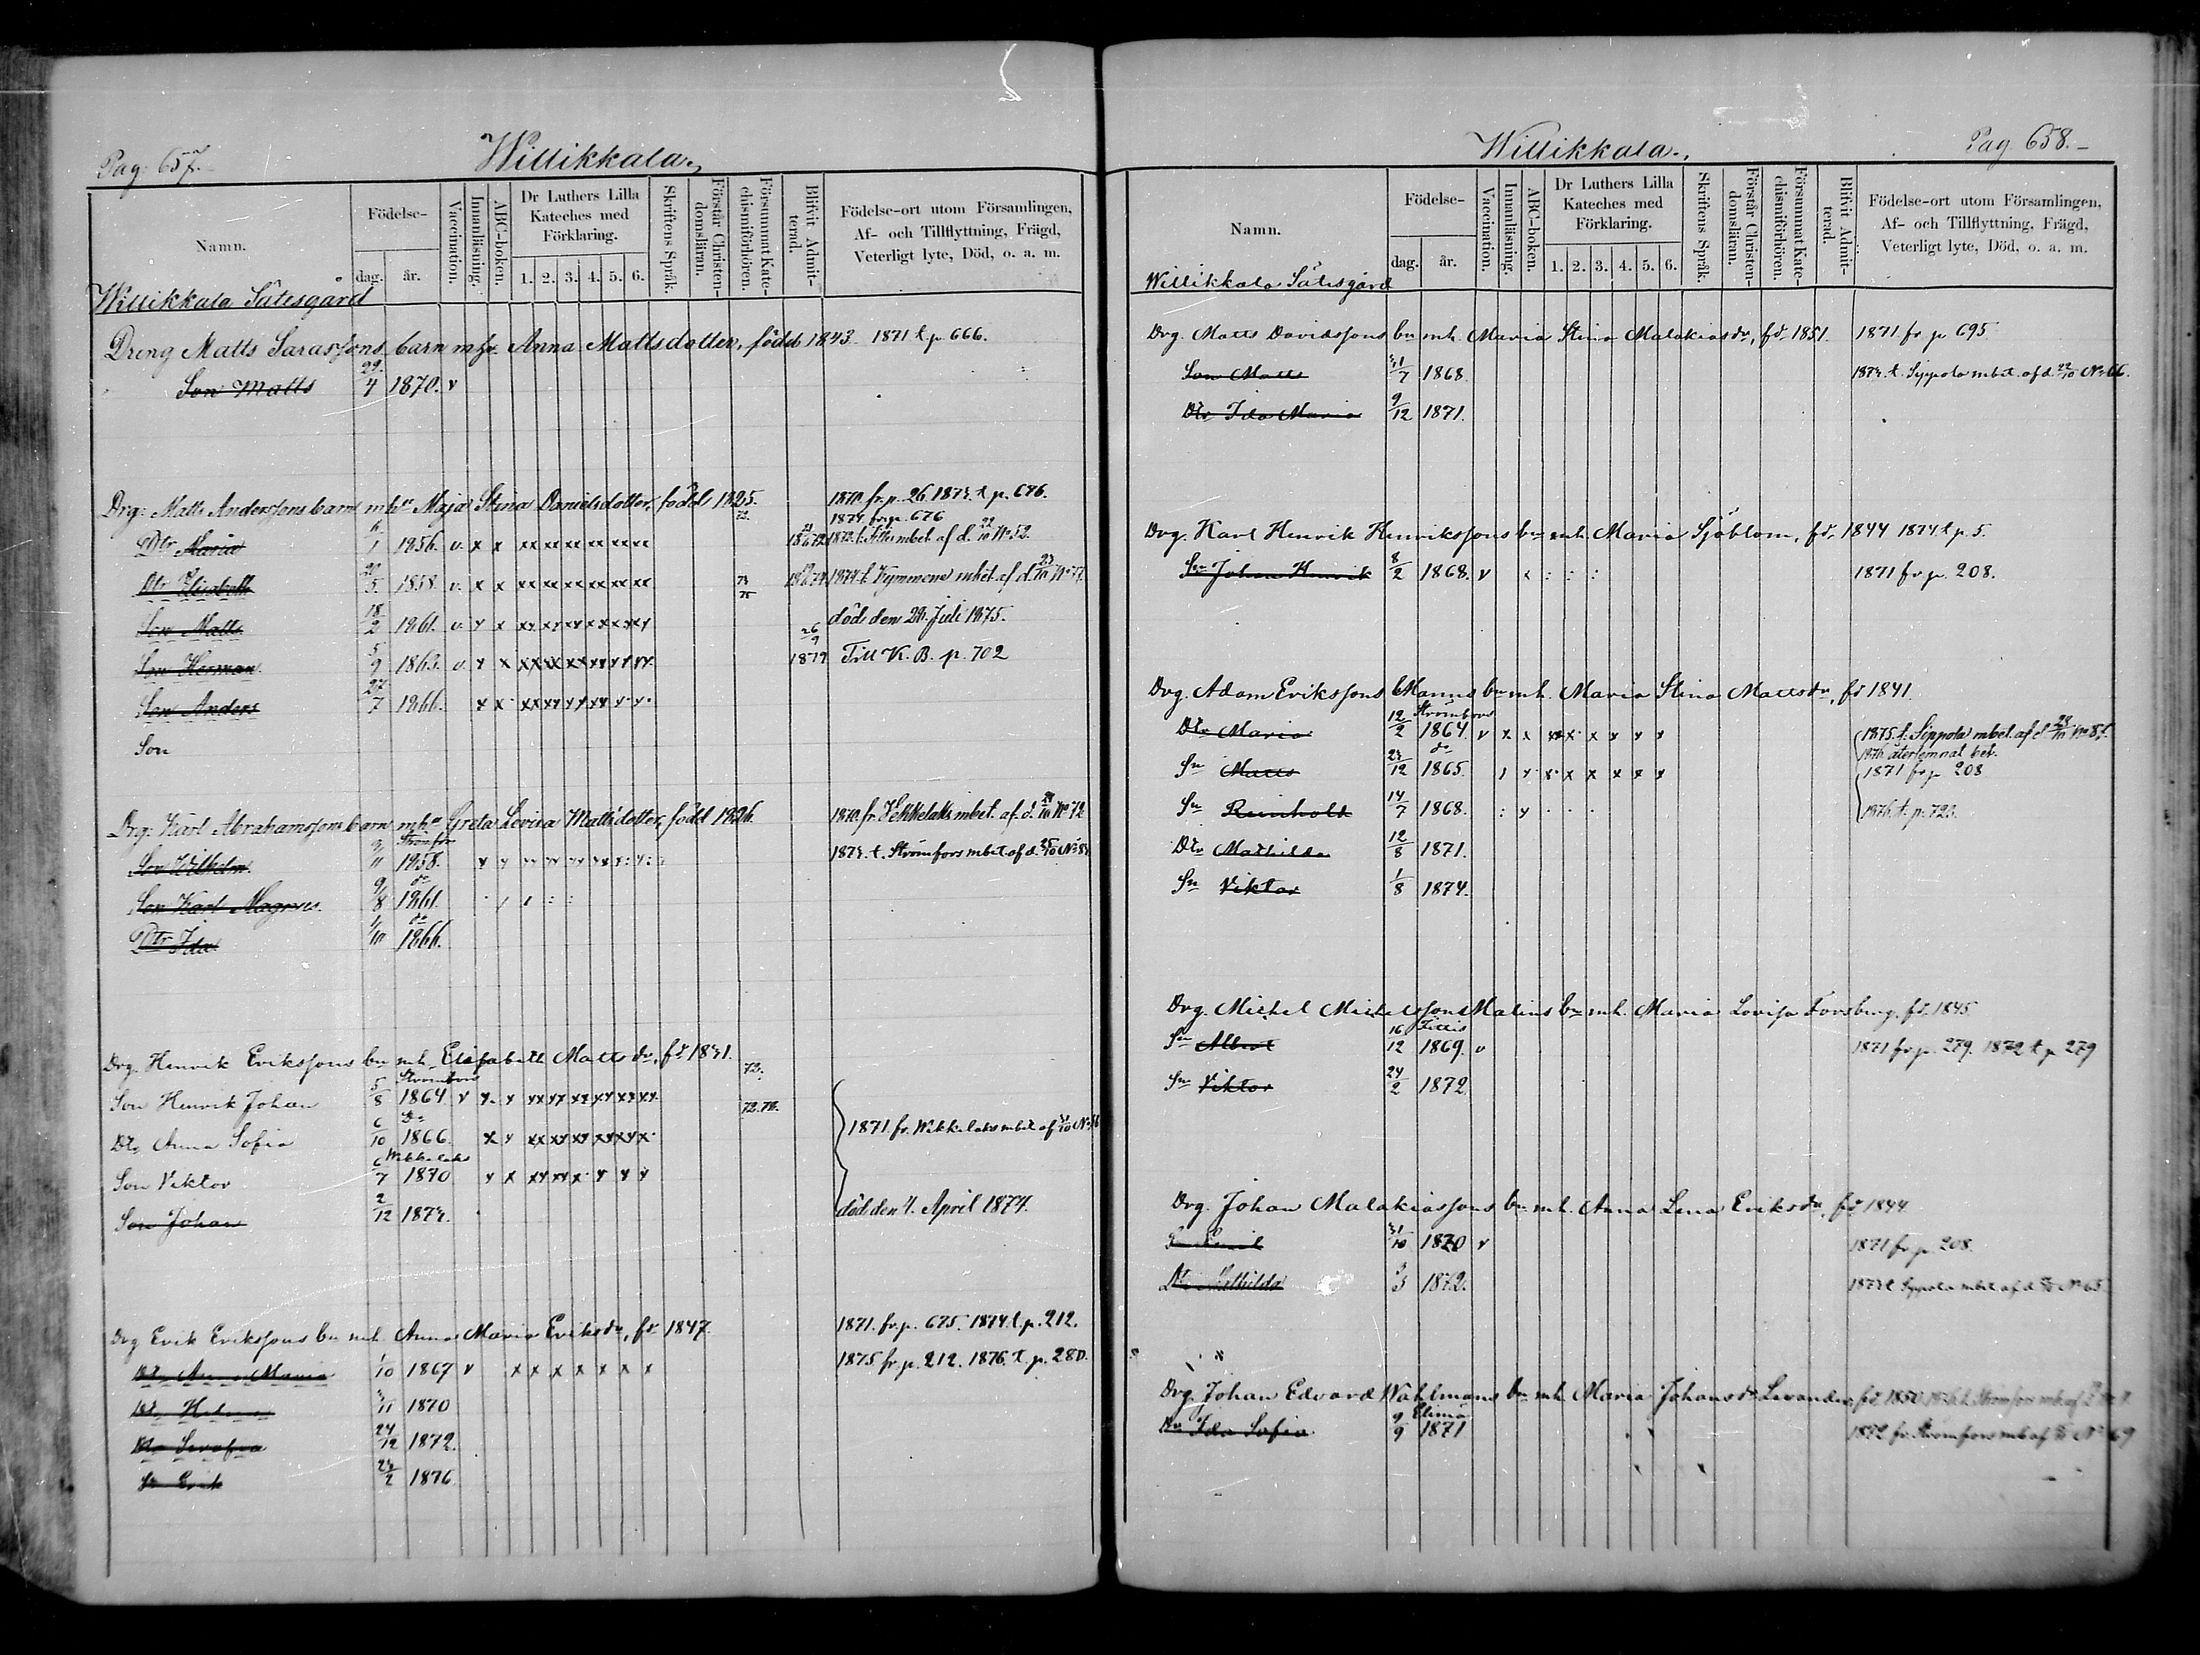 Pag: 657.
Willikkala.
Namn.
Födelse-
dag.
år.
Vaccination.
Innanläsning.
ABC-boken.
Dr Luthers Lilla
Kateches med
Förklaring.
1. 2. 3. 4. 5. 6.
Skriftens Språk.
Förstår Christen-
domsläran.
Försummat Kate-
chismiförhören.
Blifvit Admit-
terad.
Födelse-ort utom Församlingen,
Af- och Tillflyttning, Frägd,
Veterligt lyte, Död, o. a. m.
Willikkala Sätesgård
Dreng Matts Sarassons barn m hu. Anna Mattsdotter, född 1843. 1871 t. p. 666.
Son Matts 29/4 1870. v
Drg: Matts Anderssons barn m hu Maja Stina Danielsdotter, född 1825. 1870. fr. p. 26. 1873. t. p. 676.
1874 fr. p. 676
Dtr Maria 1 1856. v. x x xx xx xx xx xx xx
Dtr Elisabeth 20/5 1858. v. x x xx xx xx xx xx xx 1874. t. Kymmene mbet. af d.
Son Matts 18/2 1861. v. x x xx xx xx xx xx xx död den 28. Juli 1875.
Son Herman 5/9 1863. v. x x xx xx xx xx xx xx 26/9 1879 Till K. B. p. 702
Son Anders 27/7 1866. x x xx xx xx xx x x
Son
Drg: Karl Abrahamssons barn m hu Greta Lovisa Mattsdotter, född 1826. 1870. fr. Vekkelaks mbet. af. d. No 72
Son Wilhelm 11 1858. 1873. t. Strömfors mbet af d.
Son Karl Magnus. 9/8 do 1861.
Dtr Ida 1/10 do 1866.
Drg. Henrik Erikssons bn mh. Elisabeth Matts dr, fd 1831. 73.
Son Henrik Johan 5/8 Strömfors 1864. v x x xx xx xx xx xx xx 72. 78.
Dtr Anna Sofia 6/10 do 1866. x x xx xx xx xx xx x 1871. fr. Wekkelaks mbet af
Son Viktor 6/7 Wekkelaks 1870 x x xx xx x x x x
Son Johan 2/12 1873. död den 4. April 1874.
Drg Erik Erikssons bn mh. Anna Maria Eriks dr, fd 1847. 1871. fr. p. 675. 1874. t. p. 212.
Dtr Anna Maria 1/10 1867 v x x x x x x x 1875 fr. p. 212. 1876. t. p. 280.
Dtr 11 1870
Dtr Serafia 24/12 1872.
Sn Erik 2 1876
Willikkala.
Pag 658.
Namn.
Födelse-
dag.
år.
Vaccination.
Innanläsning.
ABC-boken.
Dr Luthers Lilla
Kateches med
Förklaring.
1. 2. 3. 4. 5. 6.
Skriftens Språk.
Förstår Christen-
domsläran.
Försummat Kate-
chismiförhören.
Blifvit Admit-
terad.
Födelse-ort utom Församlingen,
Af- och Tillflyttning, Frägd,
Veterligt lyte, Död, o. a. m.
Willikkala Sätesgård
Drg. Matts Davidssons bn mh. Maria Stina Malakias dr, fd 1851. 1871 fr. p 695.
Son Matts 31/7 1868. 1873. t. Sippola mbet. af d. 22/10 No 66.
Dtr Ida Maria 9/12 1871.
Drg. Karl Henrik Henrikssons bn mh. Maria Sjöblom, fd 1844 1874 t. p. 5.
Sn Johan Henrik 8/2 1868. v 1871 fr p. 208.
Drg. Adam Erikssons Manns bn mh. Maria Stina Matts dr, fd 1841
Dtr Maria 12/2 Strömfors 1864. v x x xx x x x x 1875. t. Sippola mbet. af d.
1876 återlemnat bet.
Sn Matts 12 do 1865. 1871 fr p 208
Sn Reinhold 14/7 1868. 1876. t. p. 723.
Dtr Mathilda 12/8 1871.
Sn Viktor 1/8 1874.
Drg. Michel Michelssons Malins bn mh. Maria Lovisa Forsberg. fd. 1845.
Sn Albert 16/12 1869. v 1871 fr p. 279. 1872 t. p 279
Sn Viktor 24/2 1872
Drg. Johan Malakiassons bn mh. Anna Lena Eriks dr, fd 1844.
31/10 1870 v 1871 fr p. 208.
Dtr 3 1872. 1873 t Sippola mbet af d. No 65.
Drg. Johan Edvard Wahlmans bn mh. Maria Johans dr Levander fd 1850
Dtr Ida Sofia 9/9 Elimä 1871 1872 fr. Strömfors mb af No 69